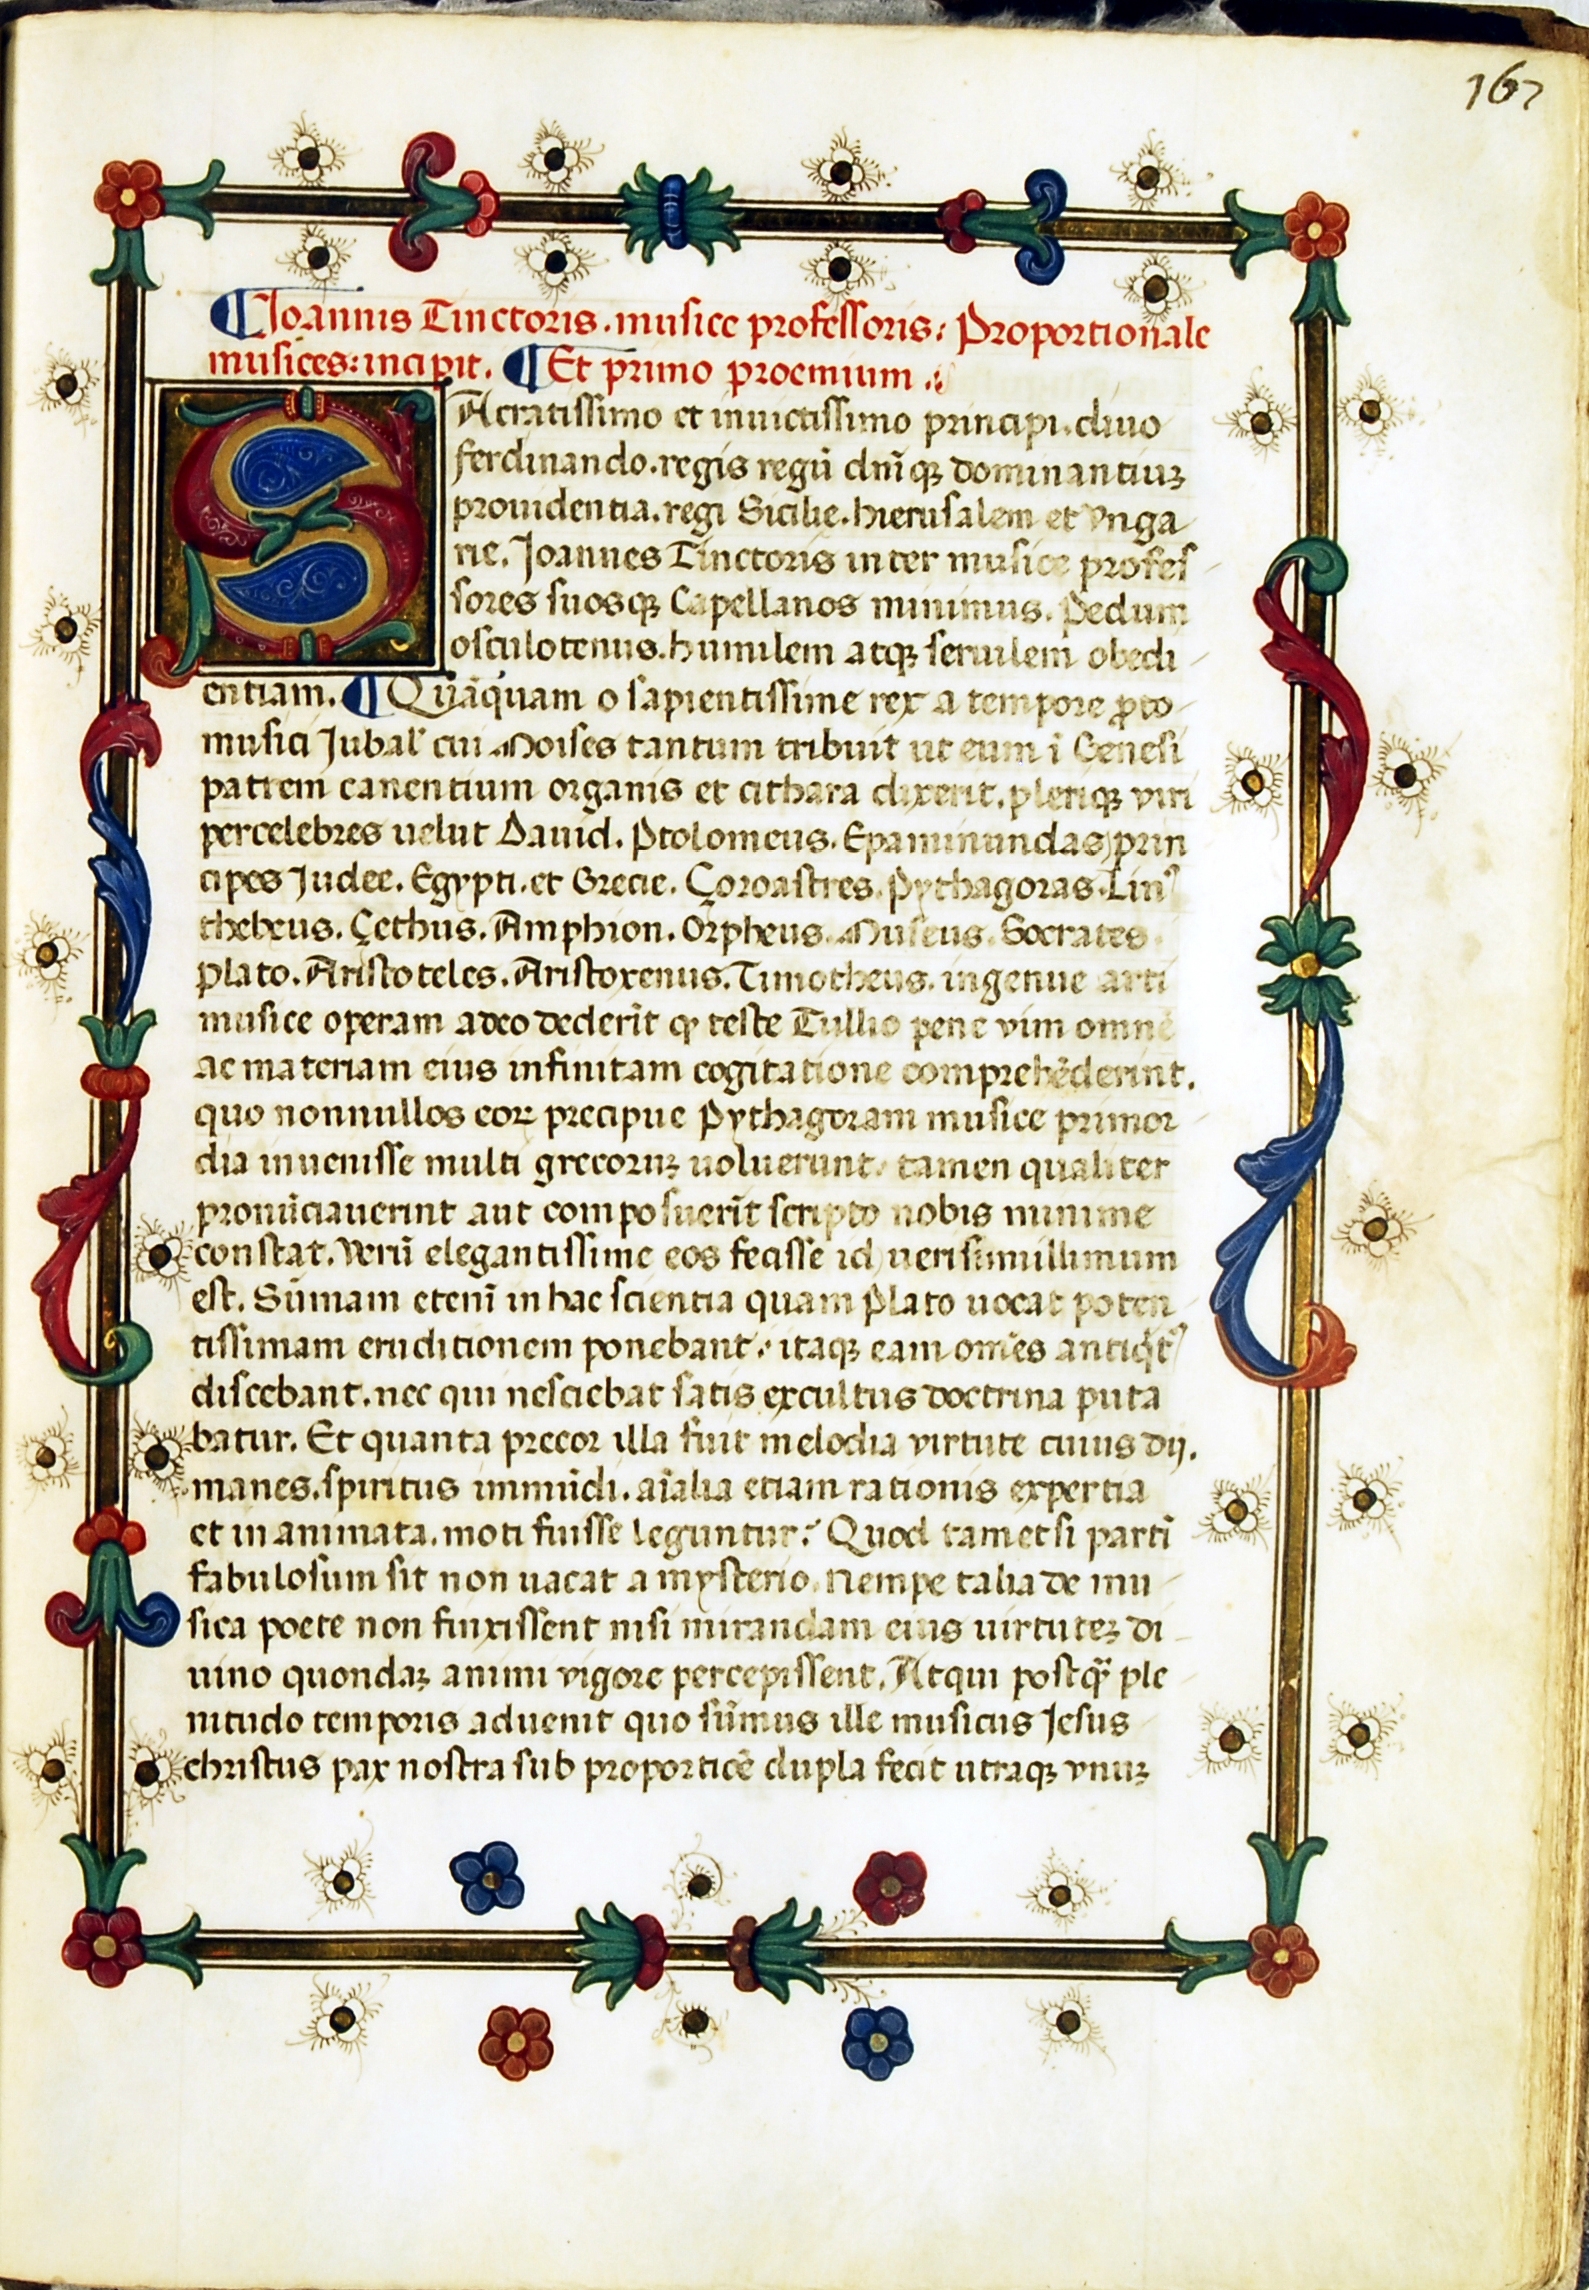 167
¶Joannis Tinctoris. musice professoris: Proportionale
musices: incipit. ¶Et primo proemium.
SAcratissimo et inuictissimo principi. diuo
ferdinando. regis regũ dñiqꝫ dominantiuꝫ
prouidentia. regi Sicilie. hierusalem et vnga
rie. Joannes Tinctoris inter musice profes
sores suosqꝫ Capellanos minimus. Pedum
osculotenus. humilem atqꝫ seruilem obedi
entiam. ¶Quãquam o sapientissime rex a tempore ꝓto
musici Jubal cui Moises tantum tribuit ut eum ĩ Genesi
patrem canentium organis et cithara dixerit. pleriqꝫ viri
percelebres uelut Dauid. Ptolomeus. Epaminundas prin
cipes Judee. Egypti. et Grecie. Çoroastres. Pythagoras. Linꝰ
thebeus. Çethus. Amphion. Orpheus. Museus. Socrates
plato. Aristoteles. Aristoxenus. Timotheus. ingenue arti
musice operam adeo dederĩt ꝙ teste Tullio pene vim omnẽ
ac materiam eius infinitam cogitatione comprehẽderint.
quo nonnullos eoꝝ precipue Pythagoram musice primor
dia inuenisse multi grecoruꝫ uoluerunt. tamen qualiter
pronũciauerint aut composuerĩt scripto nobis minime
constat. Verũ elegantissime eos fecisse id uerisimillimum
est. Sũmam etenĩ in hac scientia quam Plato uocat poten
tissimam eruditionem ponebant. itaqꝫ eam omẽs antiqͥtꝰ
discebant. nec qui nesciebat satis excultus doctrina puta
batur. Et quanta precor illa fuit melodia virtute cuius dij.
manes. spiritus immũdi. aĩalia etiam rationis expertia
et inanimata. moti fuisse leguntur: Quod tametsi partĩ
fabulosum sit non uacat a mysterio. Nempe talia de mu
sica poete non finxissent nisi mirandam eius uirtuteꝫ di
uino quondaꝫ animi vigore percepissent. Atqui postqᷓ ple
nitudo temporis aduenit quo sũmus ille musicus Jesus
christus pax nostra sub proporticẽ dupla fecit utraqꝫ vnuꝫ